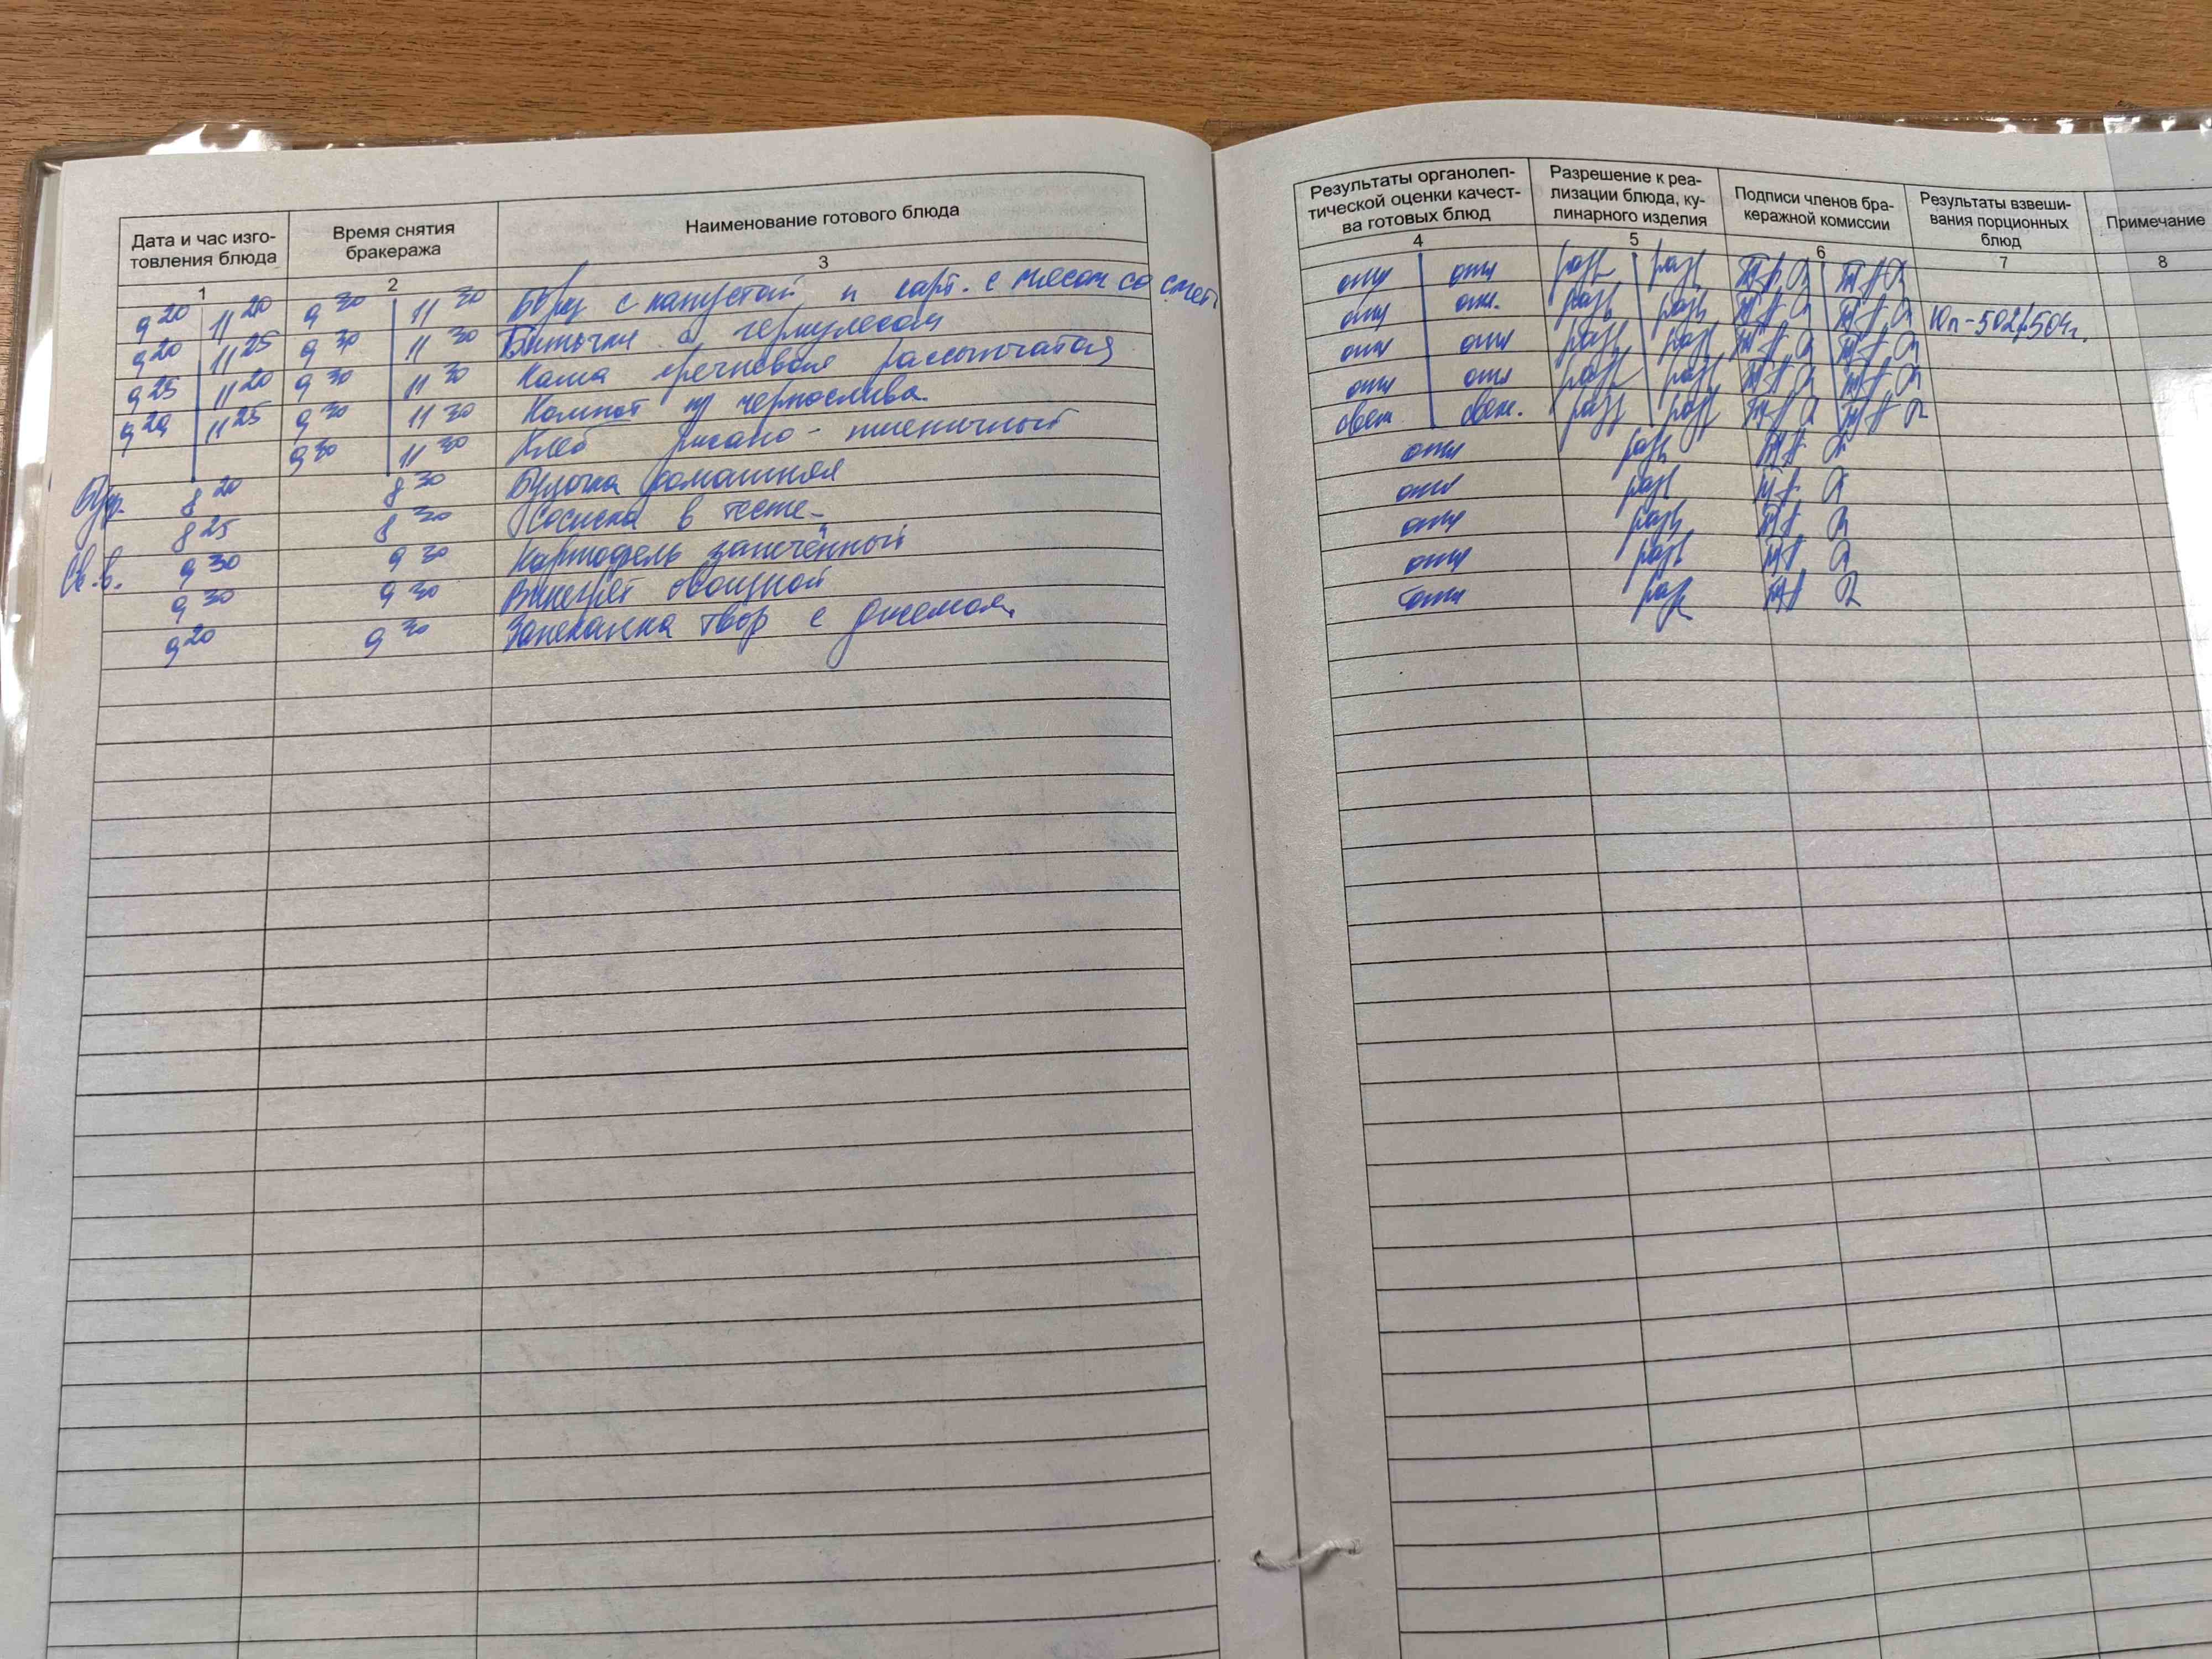 Дата и час изго-
товления блюда
Время снятия
бракеража
Наименование готового блюда
1 2 3
9 20 11 20 9 30 11 30 Борщ с капустой и карт. с мясом со смет.
9 20 11 25 9 30 11 30 Биточки с геркулесом
9 25 11 20 9 30 11 30 Каша гречневая рассыпчатая
9 20 11 25 9 30 11 30 Компот из чернослива
9 30 11 30 Хлеб ржано-пшеничный
Буф. 8 20 8 30 Булочка домашняя
8 25 8 30 Сосиска в тесте
Св.в. 9 30 9 30 Картофель запечённый
9 30 9 30 Винегрет овощной
9 20 9 30 Запеканка твор с джемом
Результаты органолеп-
тической оценки качест-
ва готовых блюд
Разрешение к реа-
лизации блюда, ку-
линарного изделия
Подписи членов бра-
керажной комиссии
Результаты взвеши-
вания порционных
блюд
Примечание
4 5 6 7 8
отл отл разр разр
отл отл. разр разр 10п-502/504г.
отл отл разр разр
отл отл разр разр
свеж свеж. разр разр
отл разр
отл разр
отл разр
отл разр
отл разр